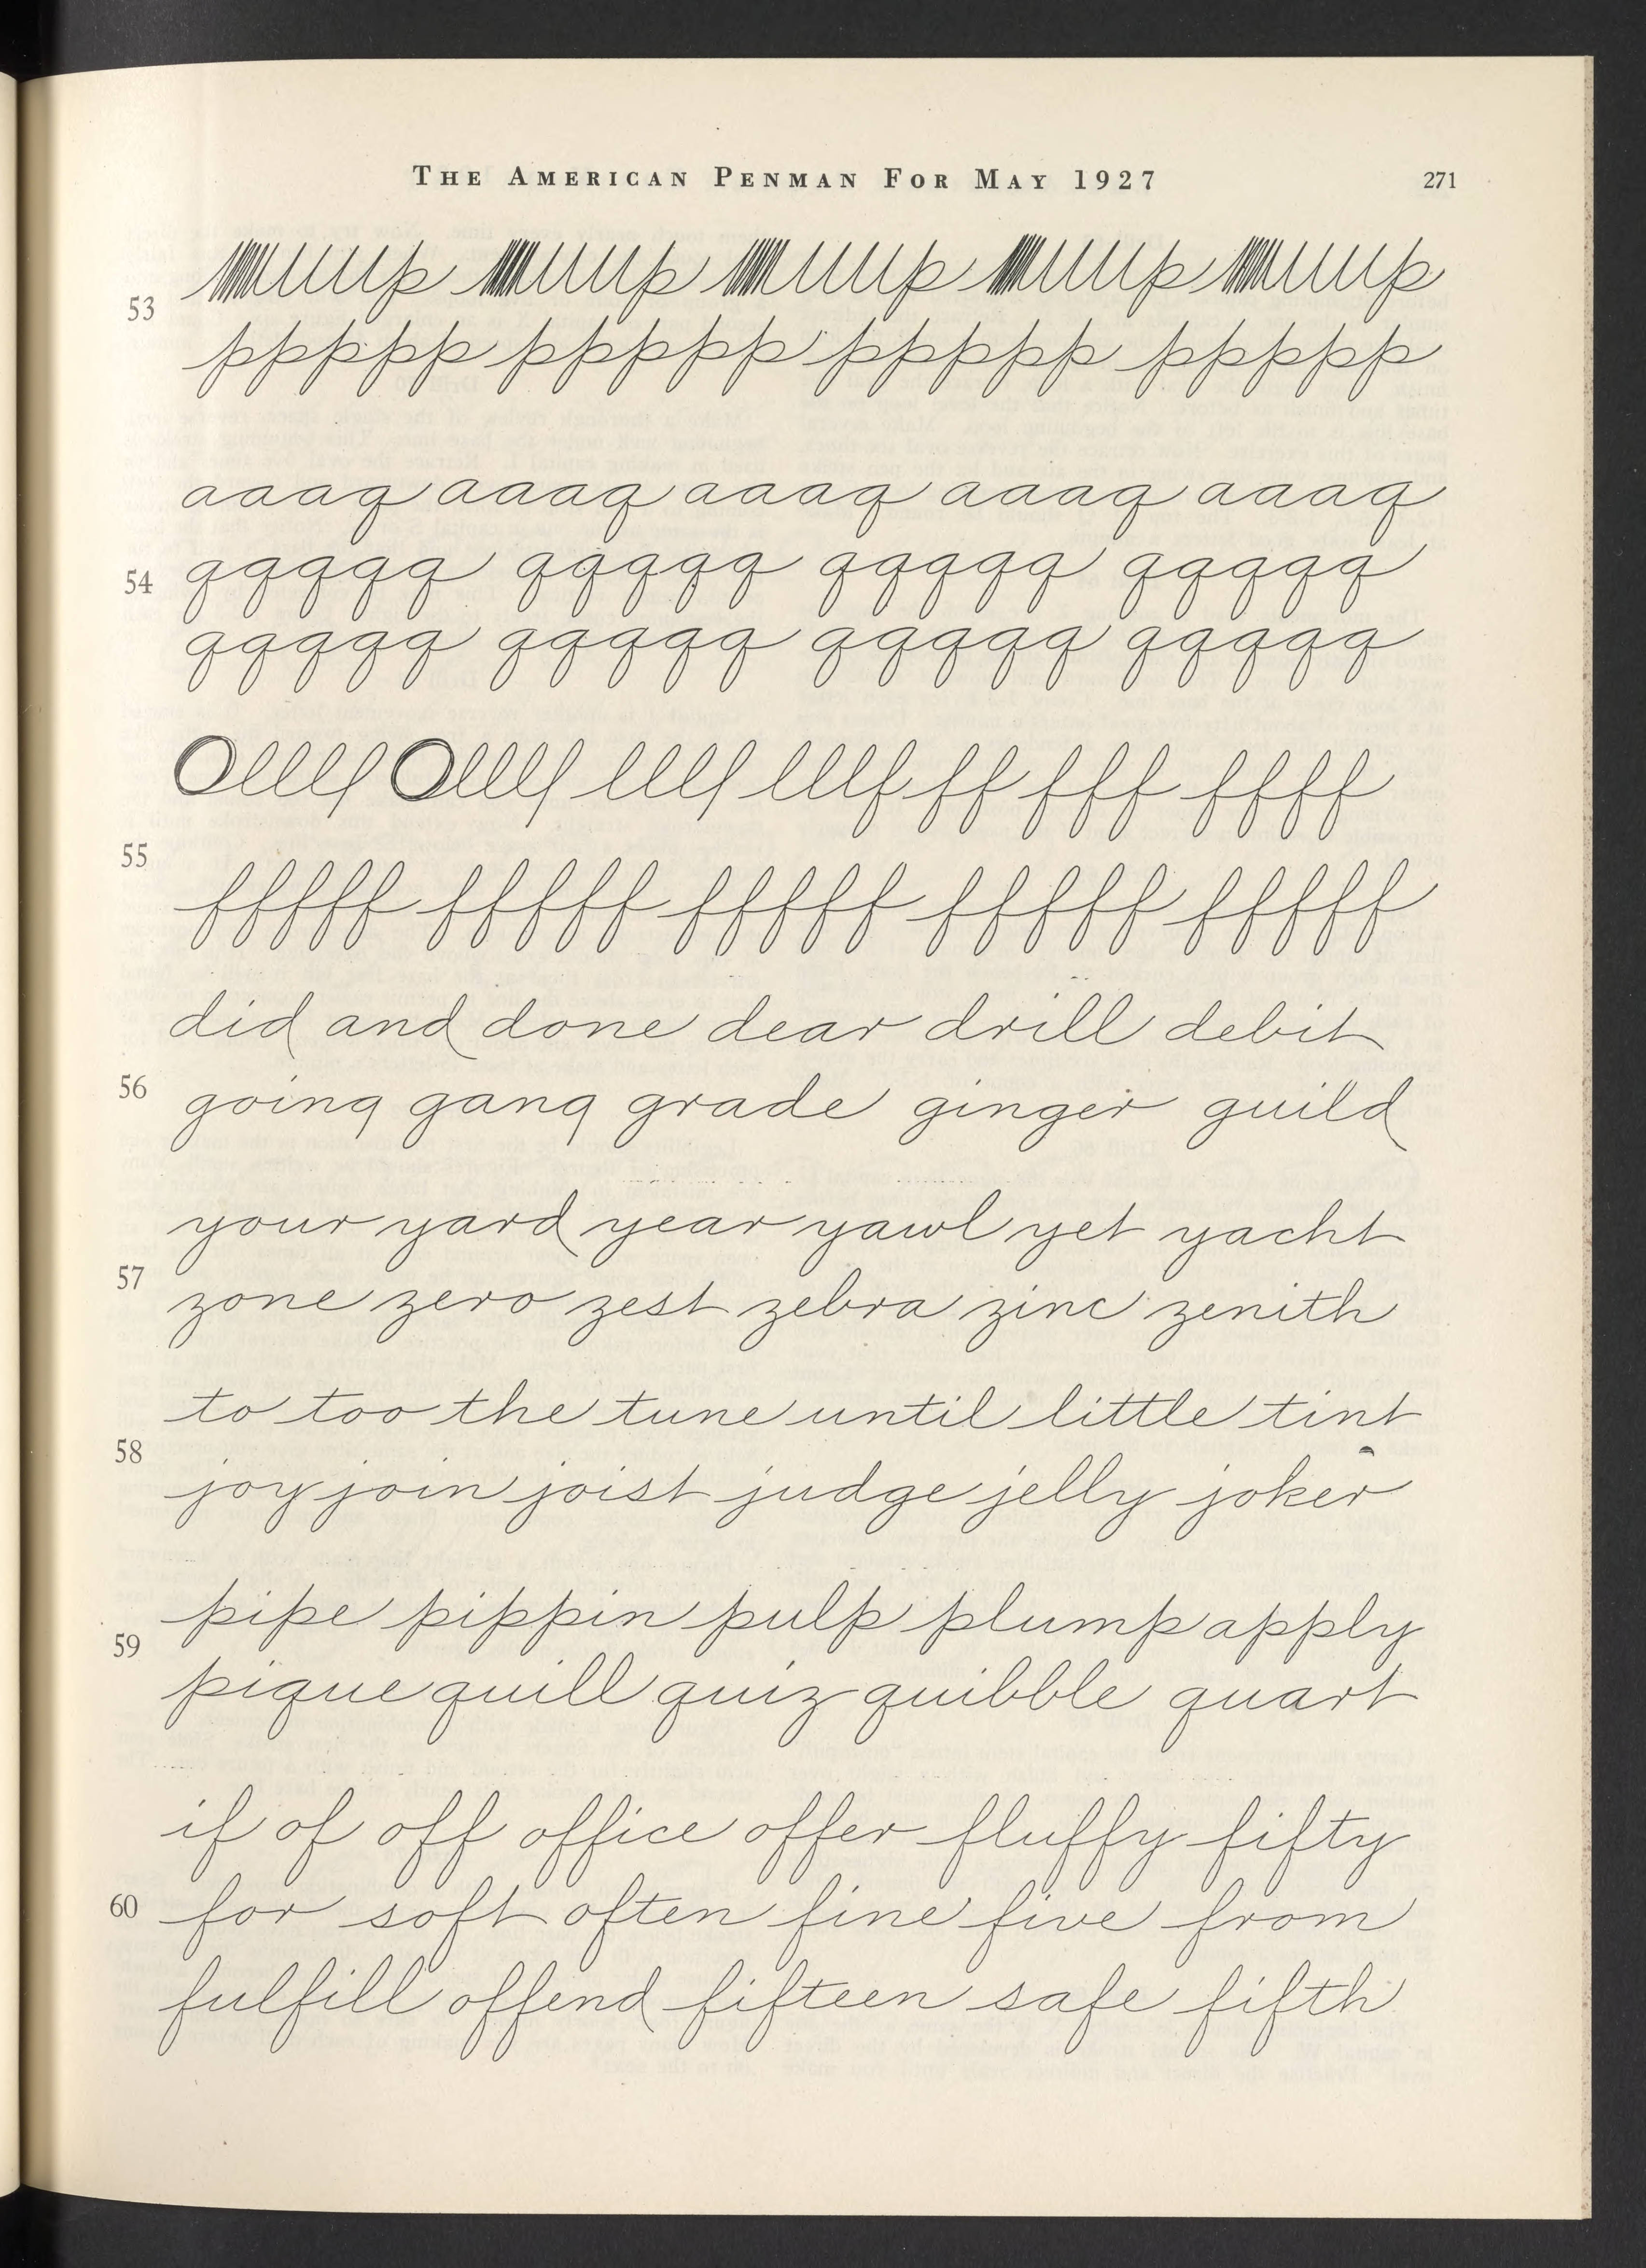 THE AMERICAN PENMAN FOR MAY 1927 271
53
ppppp ppppp ppppp ppppp
aaaq aaaaq aaaaq aaaaq aaaaq
54 qqqqq qqqqq qqqqq qqqqq
qqqqq qqqqq qqqqq qqqqq
Ollll Ollll llll lllf ff fff ffff
55
fffff fffff fffff fffff fffff
did and done dear drill debit
56
going gang grade ginger guild
your yard year yawl yet yacht
57
zone zero zest zebra zinc zenith
to too the tune until little tint
58
joy join joist judge jelly joker
pipe pippin pulp plump apply
59
pique quill quiz quibble quart
if of off office offer fluffy fifty
60 for soft often fine five from
fulfill offend fifteen safe fifth